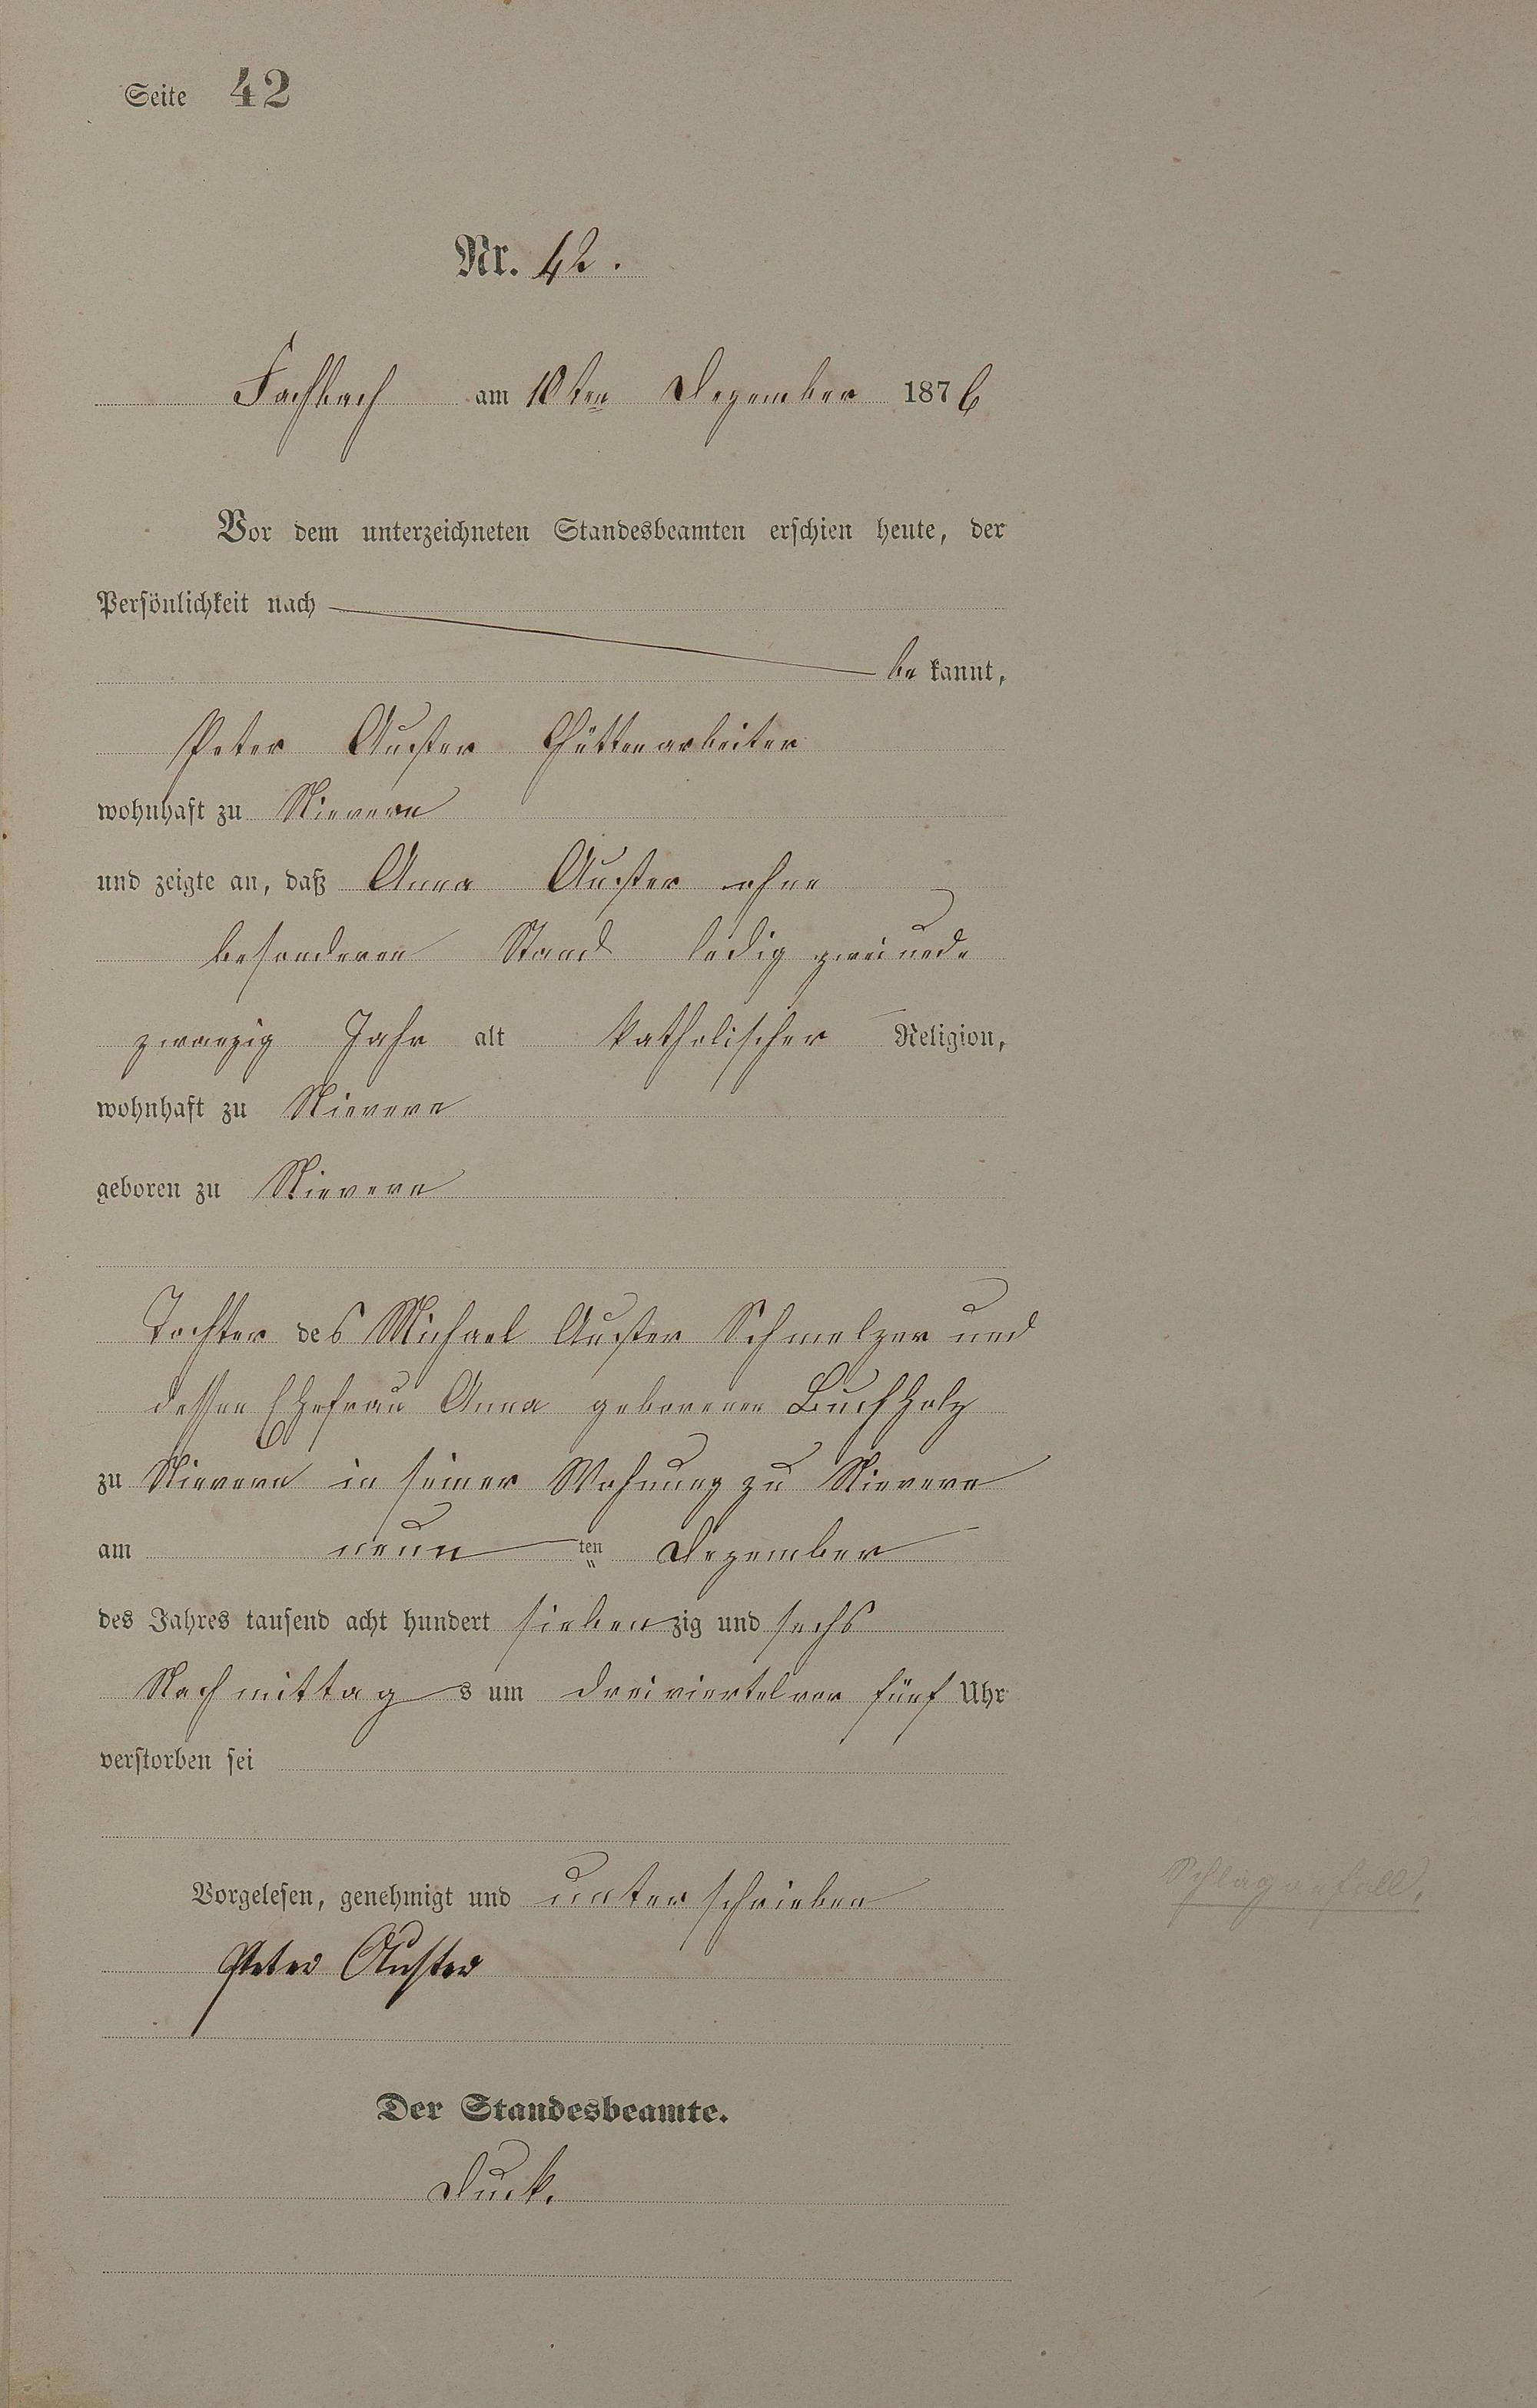 Seite 42
Nr. 42.
Fachbach am 10ten Dezember 1876
Vor dem unterzeichneten Standesbeamten erschien heute, der
Persönlichkeit nach
be kannt,
Peter Auster Hüttenarbeiter
wohnhaft zu Nievern
und zeigte an, daß Anna Auster ohne
besonderen Stand ledig zweiund-
zwanzig Jahr alt katholischer Religion,
wohnhaft zu Nievern
geboren zu Nievern
Tochter des Michael Auster Schmelzer und
dessen Ehefrau Anna geborenen Buchholz
zu Nievern in seiner Wohnung zu Nievern
am neun ten Dezember
des Jahres tausend acht hundert siebenzig und sechs
Nachmittag s um dreiviertel vor fünf Uhr
verstorben sei
Vorgelesen, genehmigt und unterschrieben
Schlaganfall.
Peter Auster
Der Standesbeamte.
Duck.